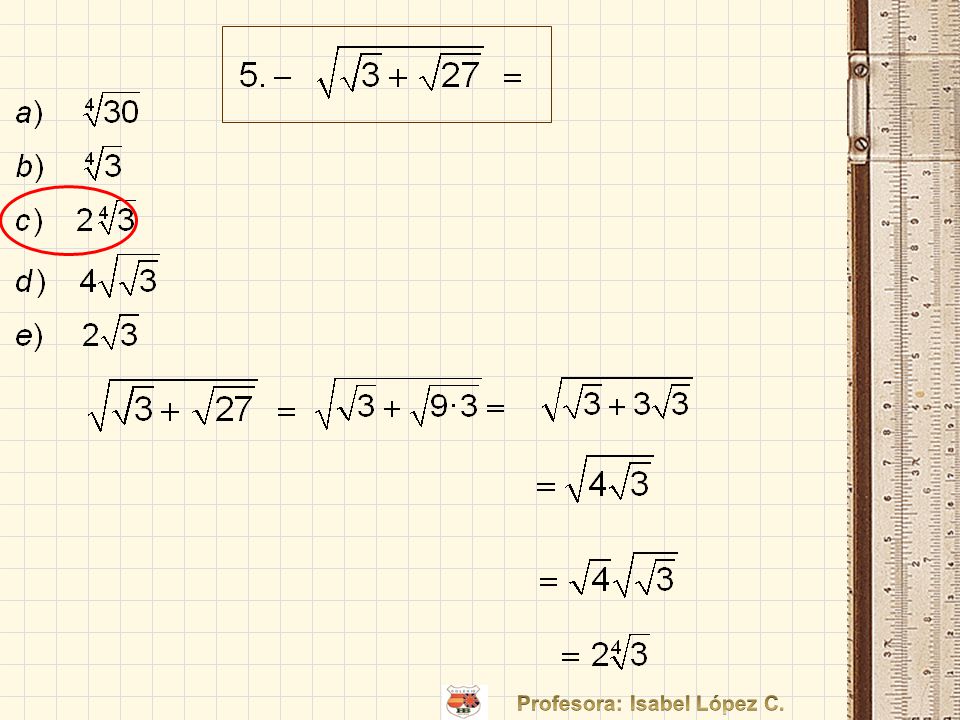 5.– √(√3 + √27) =
a) ∜30
b) ∜3
c) 2∜3
d) 4√√3
e) 2√3
√(√3 + √27) = √(√3 + √(9·3)) = √(√3 + 3√3)
= √(4√3)
= √4 √√3
= 2∜3
Profesora: Isabel López C.